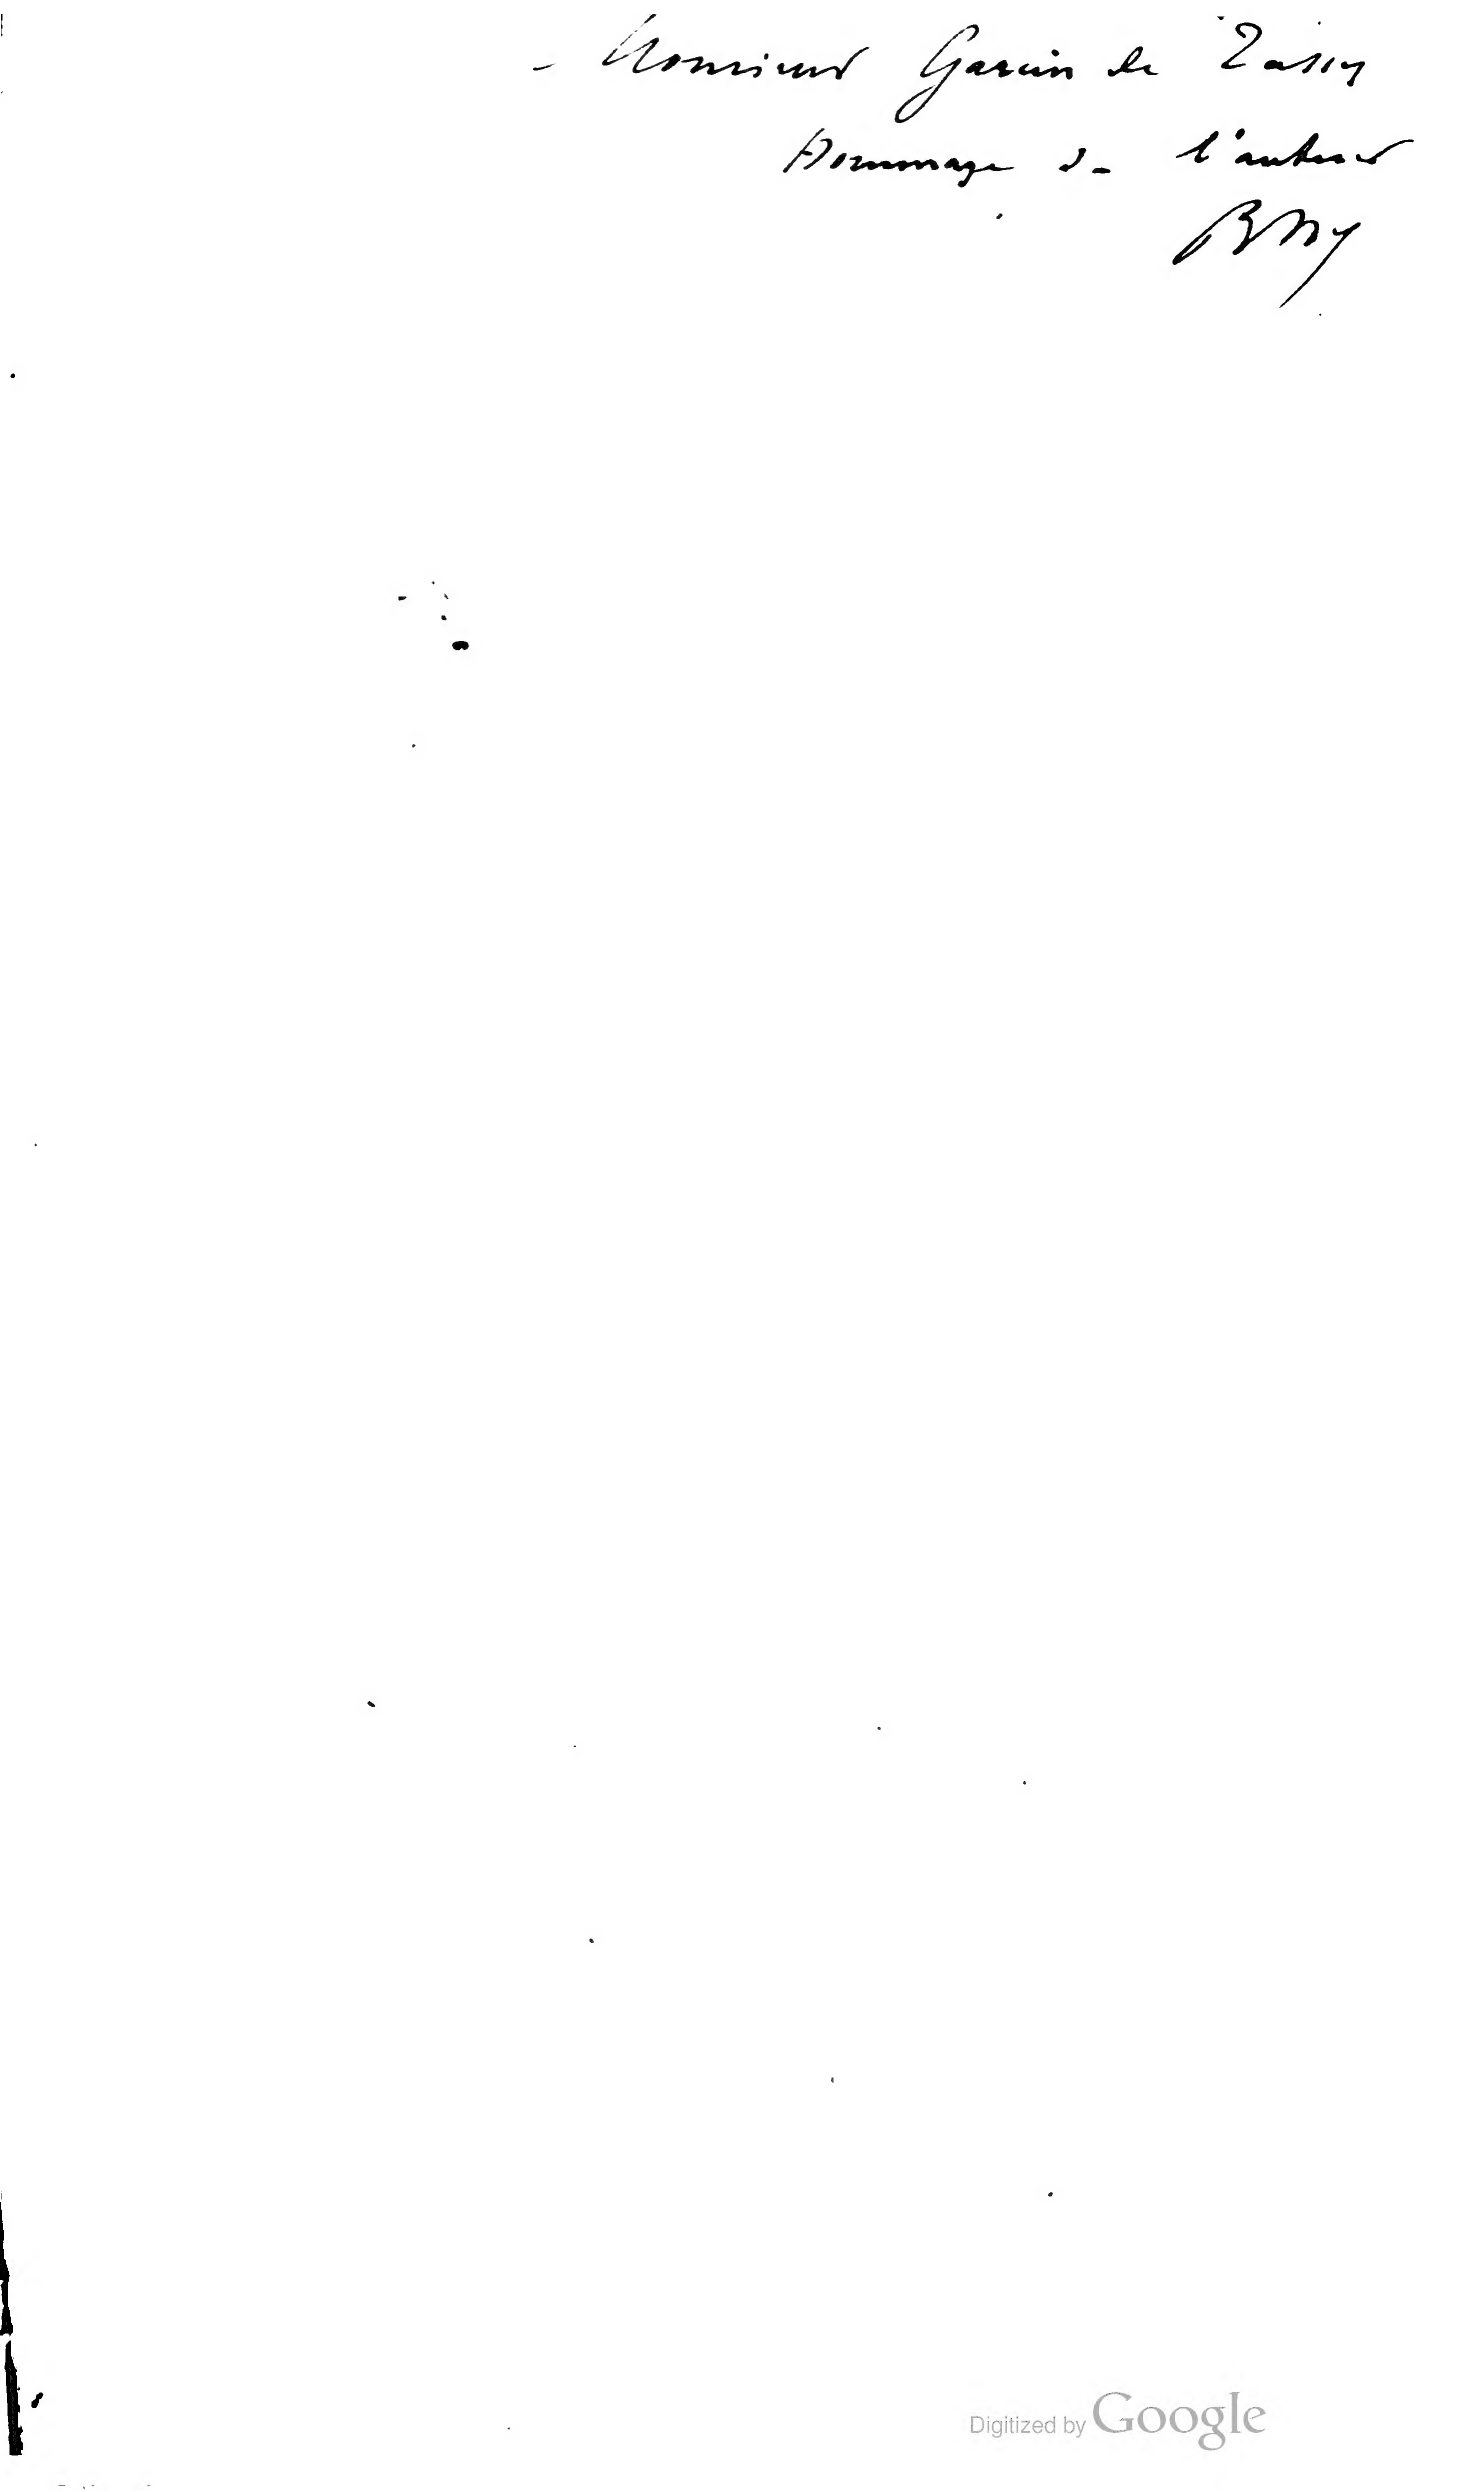 Monsieur Garcin de Tassy
Hommage de l'auteur
Digitized by Google